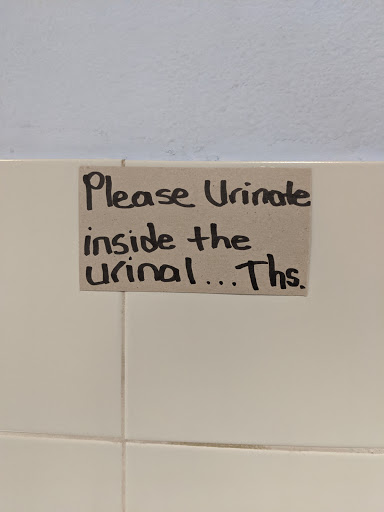 Please Urinate
inside the
urinal...Ths.